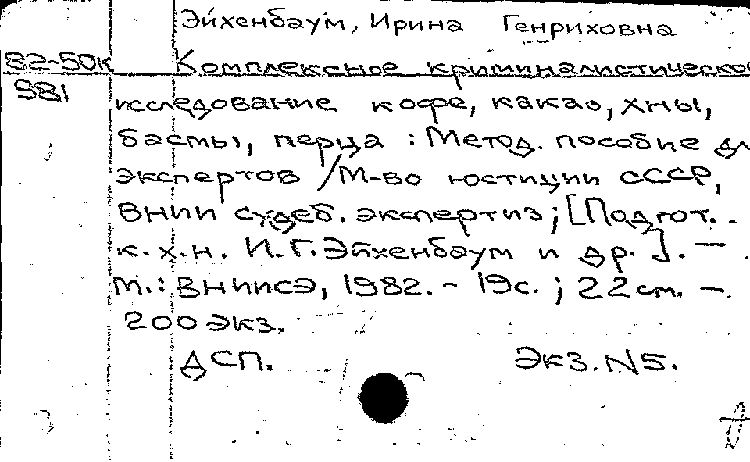 Эйхенбаум, Ирина Генриховна
82-50к Комплексное криминалистическое
981 исследование кофе, какао, хны,
басмы, перца : Метод. пособие для
экспертов / М-во юстиции СССР,
ВНИИ судеб. экспертиз; [Подгот.
к.х.н. И.Г. Эйхенбаум и др.]. –
М.: ВНИИСЭ, 1982. - 19с. ; 22см. –
200 экз.
ДСП. Экз. N5.